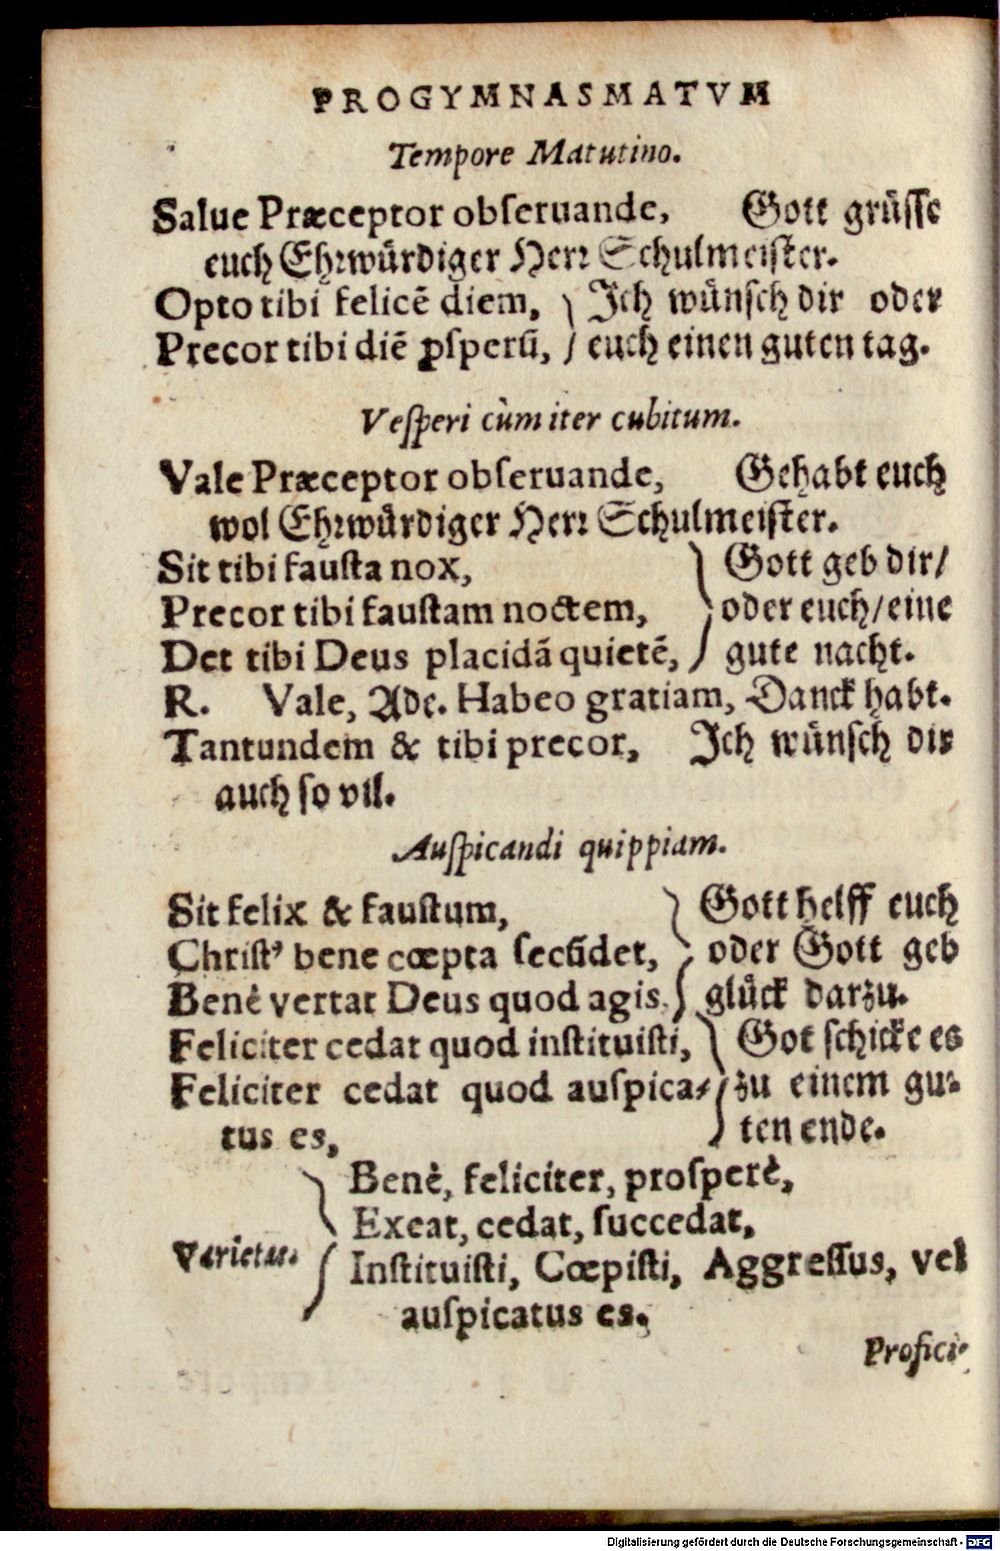 PROGYMNASMATVM
Tempore Matutino.
Salue Præceptor obſeruande,   Gott grüſſe
euch Ehrwürdiger Herr Schulmeiſter.
Opto tibi felicē diem,   Ich wünſch dir oder
Precor tibi diē ꝓſperū,   euch einen guten tag.
Veſperi cùm iter cubitum.
Vale Præceptor obſeruande,   Gehabt euch
wol Ehrwürdiger Herr Schulmeiſter.
Sit tibi fauſta nox,   Gott geb dir/
Precor tibi fauſtam noctem,   oder euch/eine
Det tibi Deus placidā quietē,   gute nacht.
R. Vale, Ade. Habeo gratiam, Danck habt.
Tantundem & tibi precor,   Ich wünſch dir
auch ſo vil.
Auſpicandi quippiam.
Sit felix & fauſtum,   Gott helff euch
Chriſtꝰ bene cœpta ſecūdet,   oder Gott geb
Benè vertat Deus quod agis.   glück darzu.
Feliciter cedat quod inſtituiſti,   Got ſchicke es
Feliciter cedat quod auſpica⸗   zu einem gu⸗
tus es,   ten ende.
Benè, feliciter, proſperè,
Exeat, cedat, ſuccedat,
Varietas.   Inſtituiſti, Cœpiſti, Aggreſſus, vel
auſpicatus es.
Profici⸗
Digitalisierung gefördert durch die Deutsche Forschungsgemeinschaft - DFG